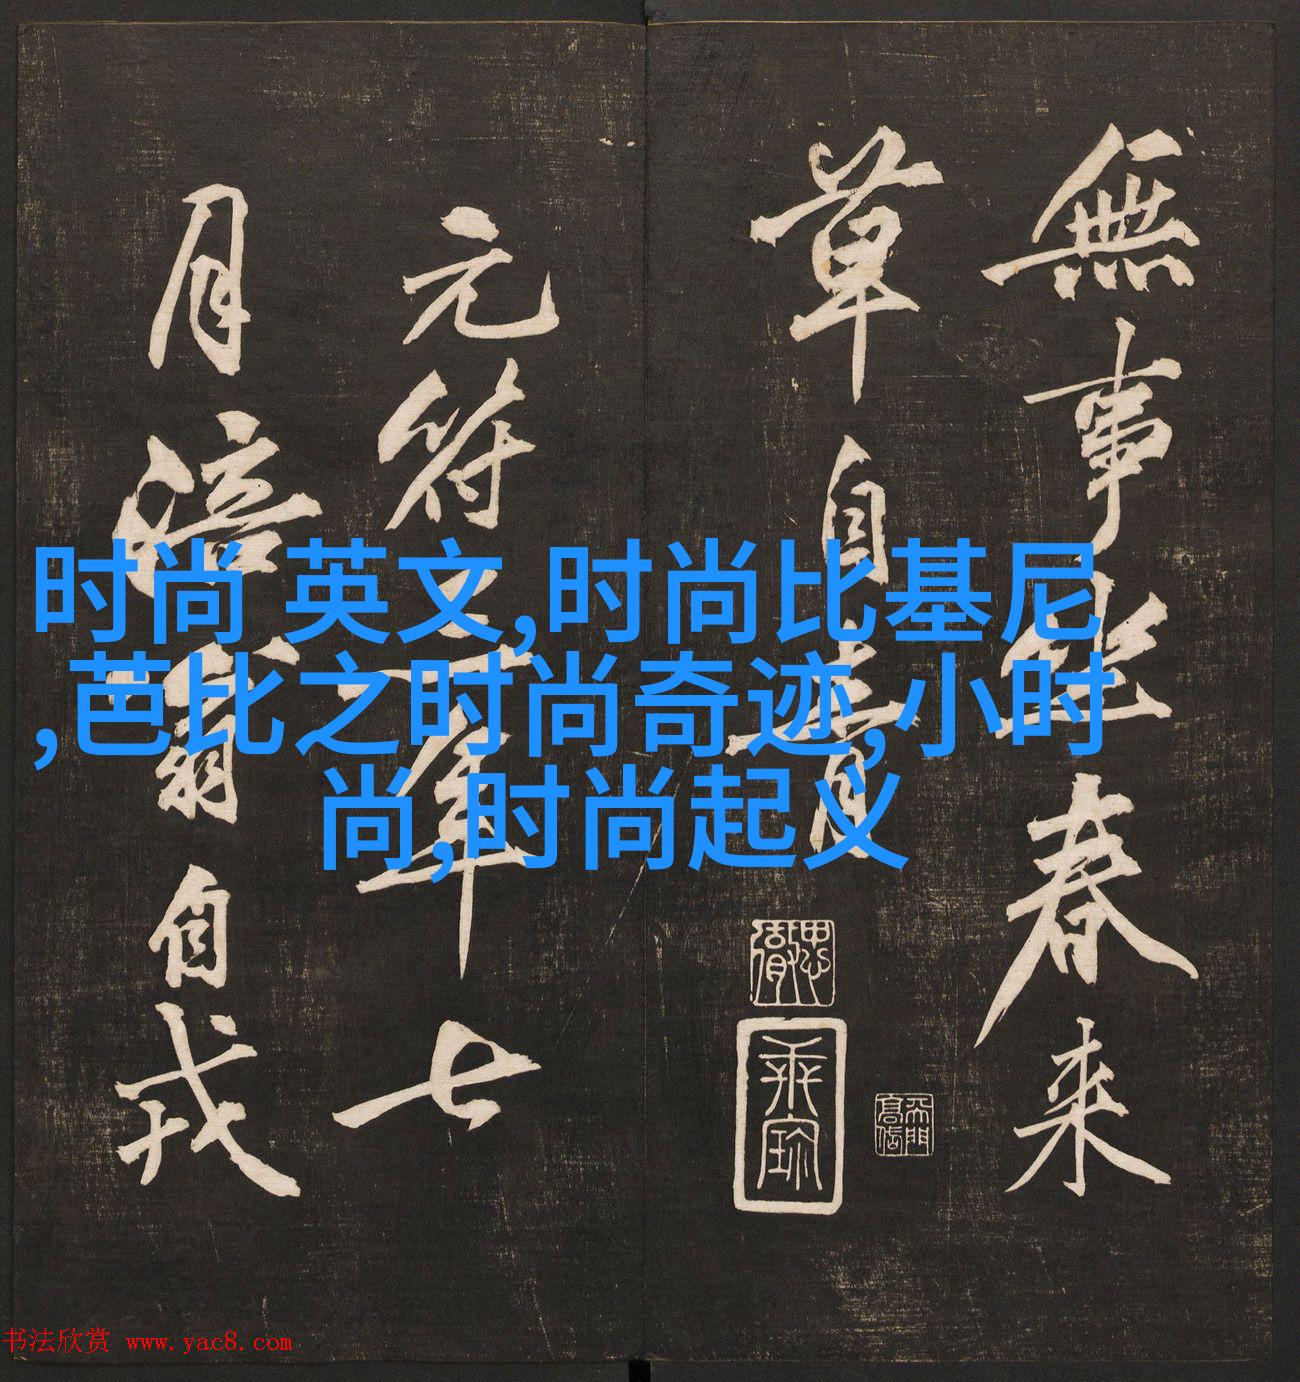 無事坐春来
草自青
元符三年七
月涪翁自戒
时尚 英文,时尚比基尼
,芭比之时尚奇迹,小时
尚,时尚起义
书法欣赏 www.yac8.com